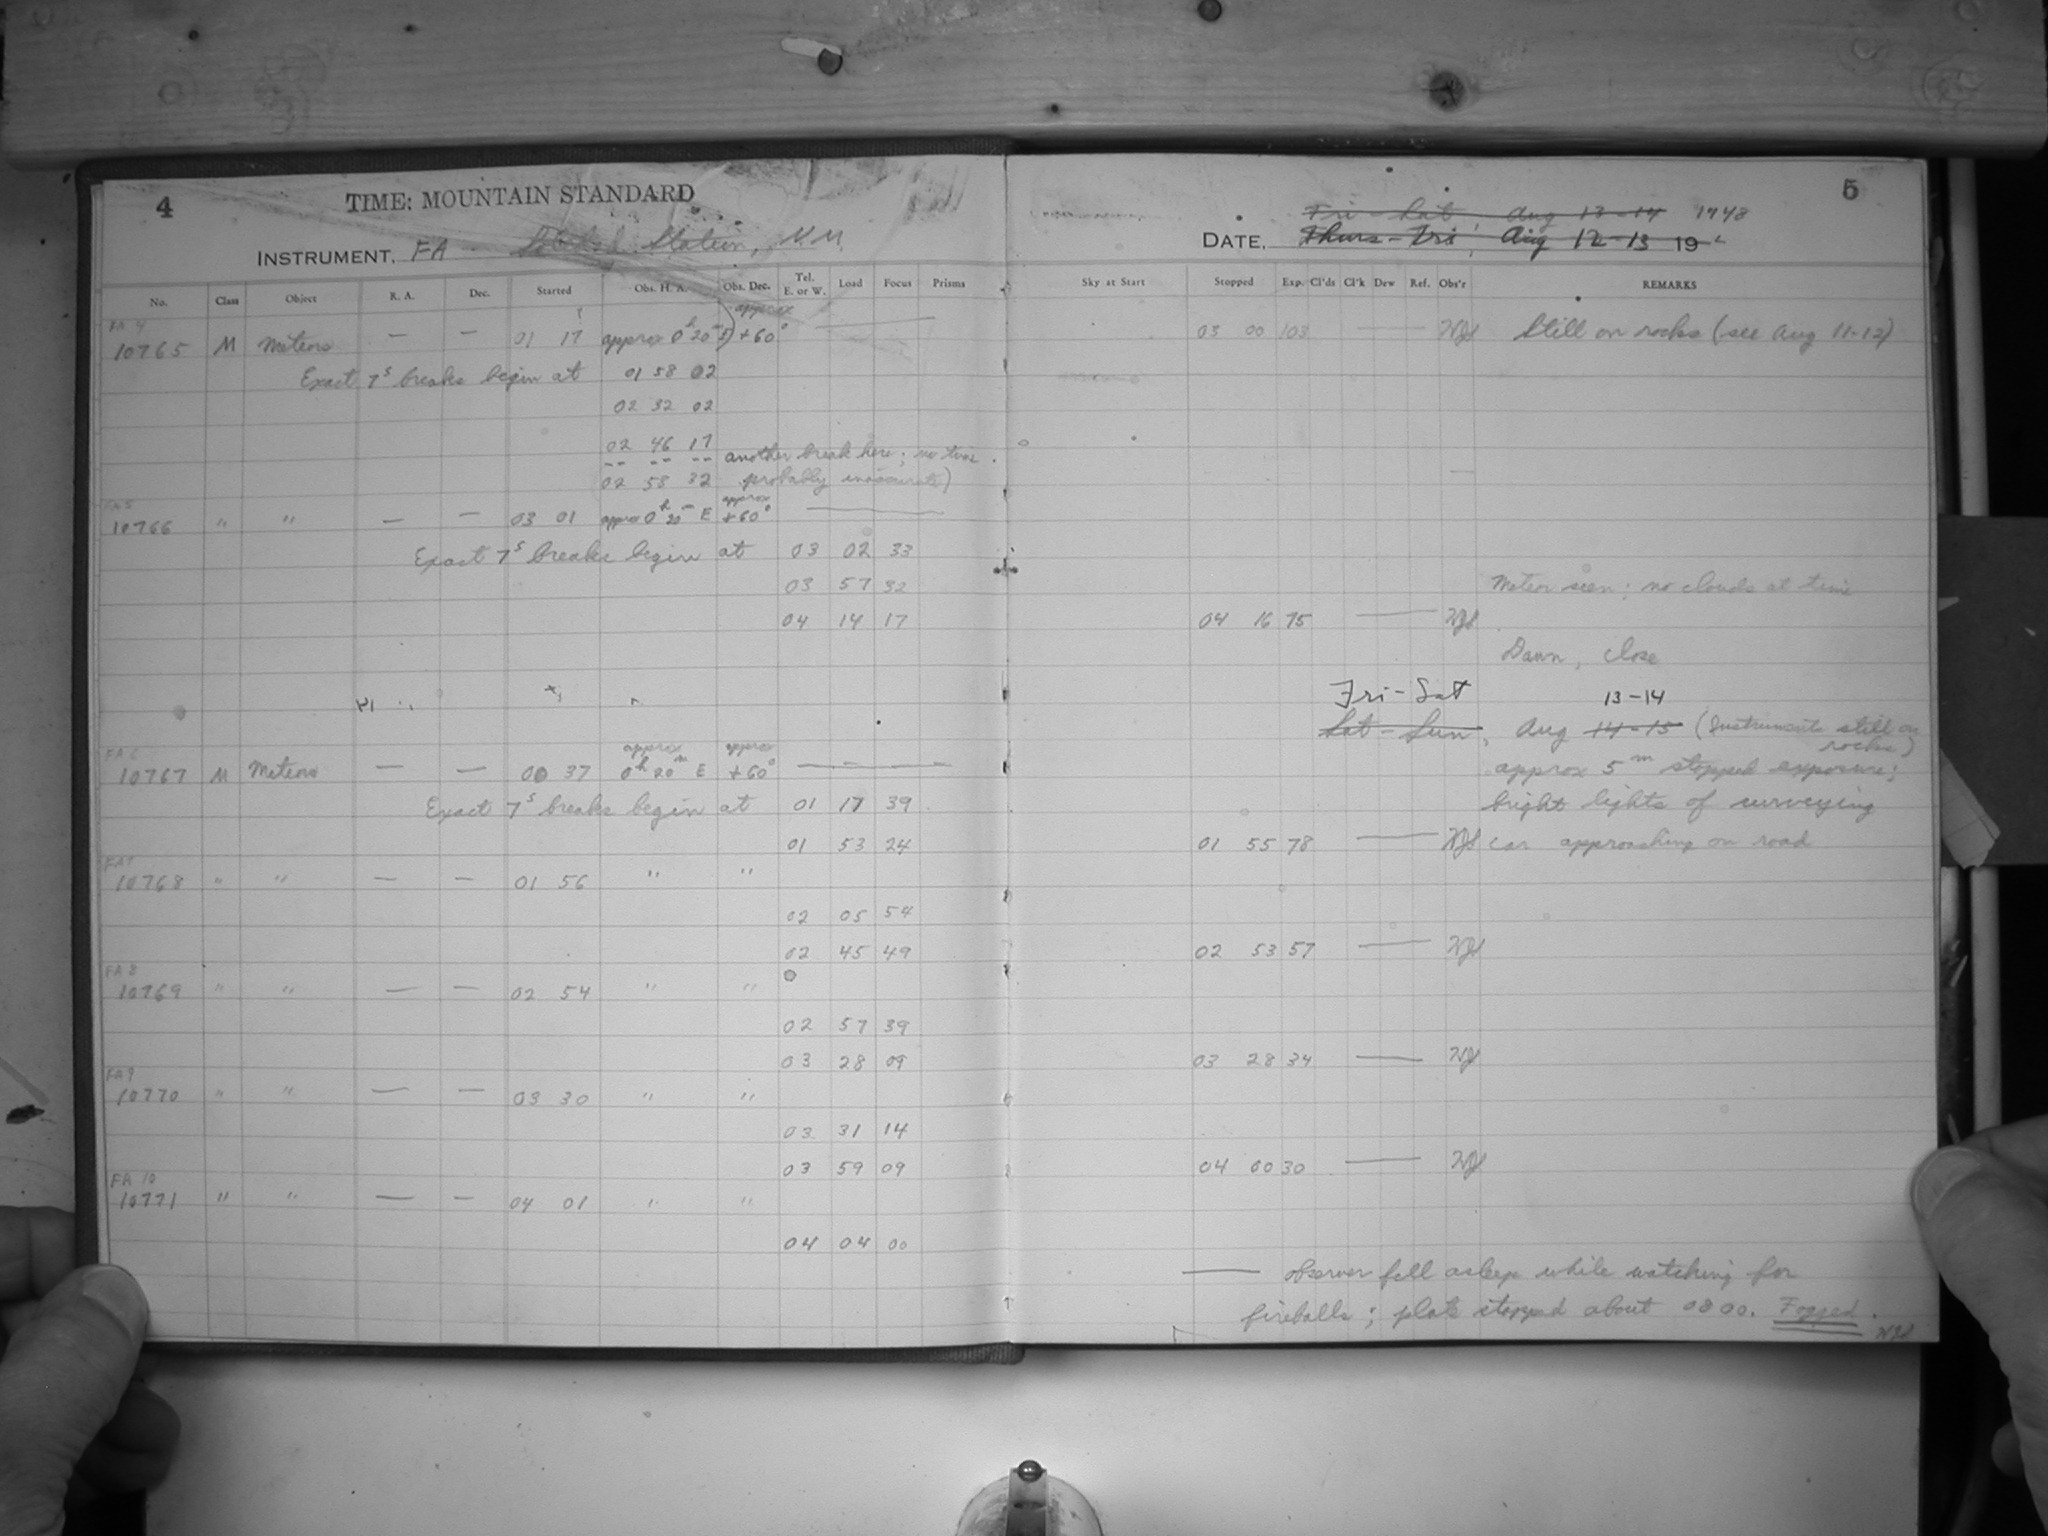 4
TIME: MOUNTAIN STANDARD
INSTRUMENT, FA - Station, N.M.
No. Class Object R. A. Dec. Started Obs. H. A. Obs. Dec. Tel. E. or W. Load Focus Prisms
FA 4 approx
10765 M Meteors — — 01 17 approx 0h 20m E) +60°
Exact 7s breaks begin at 01 58 02
02 32 02
02 46 17
-- -- -- another break here; no time.
02 58 32 probably inaccurate)
FA 5 approx
10766 " " — — 03 01 approx 0h 20m E +60°
Exact 7s breaks begin at 03 02 33
03 57 32
04 14 17
FA 6 approx approx
10767 M Meteors — — 00 37 0h 20m E +60° — — — —
Exact 7s breaks begin at 01 17 39
01 53 24
FA 7
10768 " " — — 01 56 " "
02 05 54
02 45 49
FA 8
10769 " " — — 02 54 " "
02 57 39
03 28 09
FA 9
10770 " " — — 03 30 " "
03 31 14
03 59 09
FA 10
10771 " " — — 04 01 " "
04 04 00
5
Fri - Sat Aug 13-14 1948
DATE, Thurs - Fri, Aug 12-13 19
Sky at Start Stopped Exp. Cl'ds Cl'k Dew Ref. Obs'r REMARKS
03 00 103 — WJS Still on rocks (see Aug 11-12)
Meteor seen; no clouds at time
04 16 75 — WJS
Dawn, close
Fri - Sat 13-14
Sat - Sun, Aug 14-15 (Instruments still on
rocks)
approx 5m stopped exposure;
bright lights of surveying
01 55 78 — WJS car approaching on road
02 53 57 — WJS
03 28 34 — WJS
04 00 30 — WJS
— observer fell asleep while watching for
fireballs; plate stopped about 0800. Fogged.
WJS